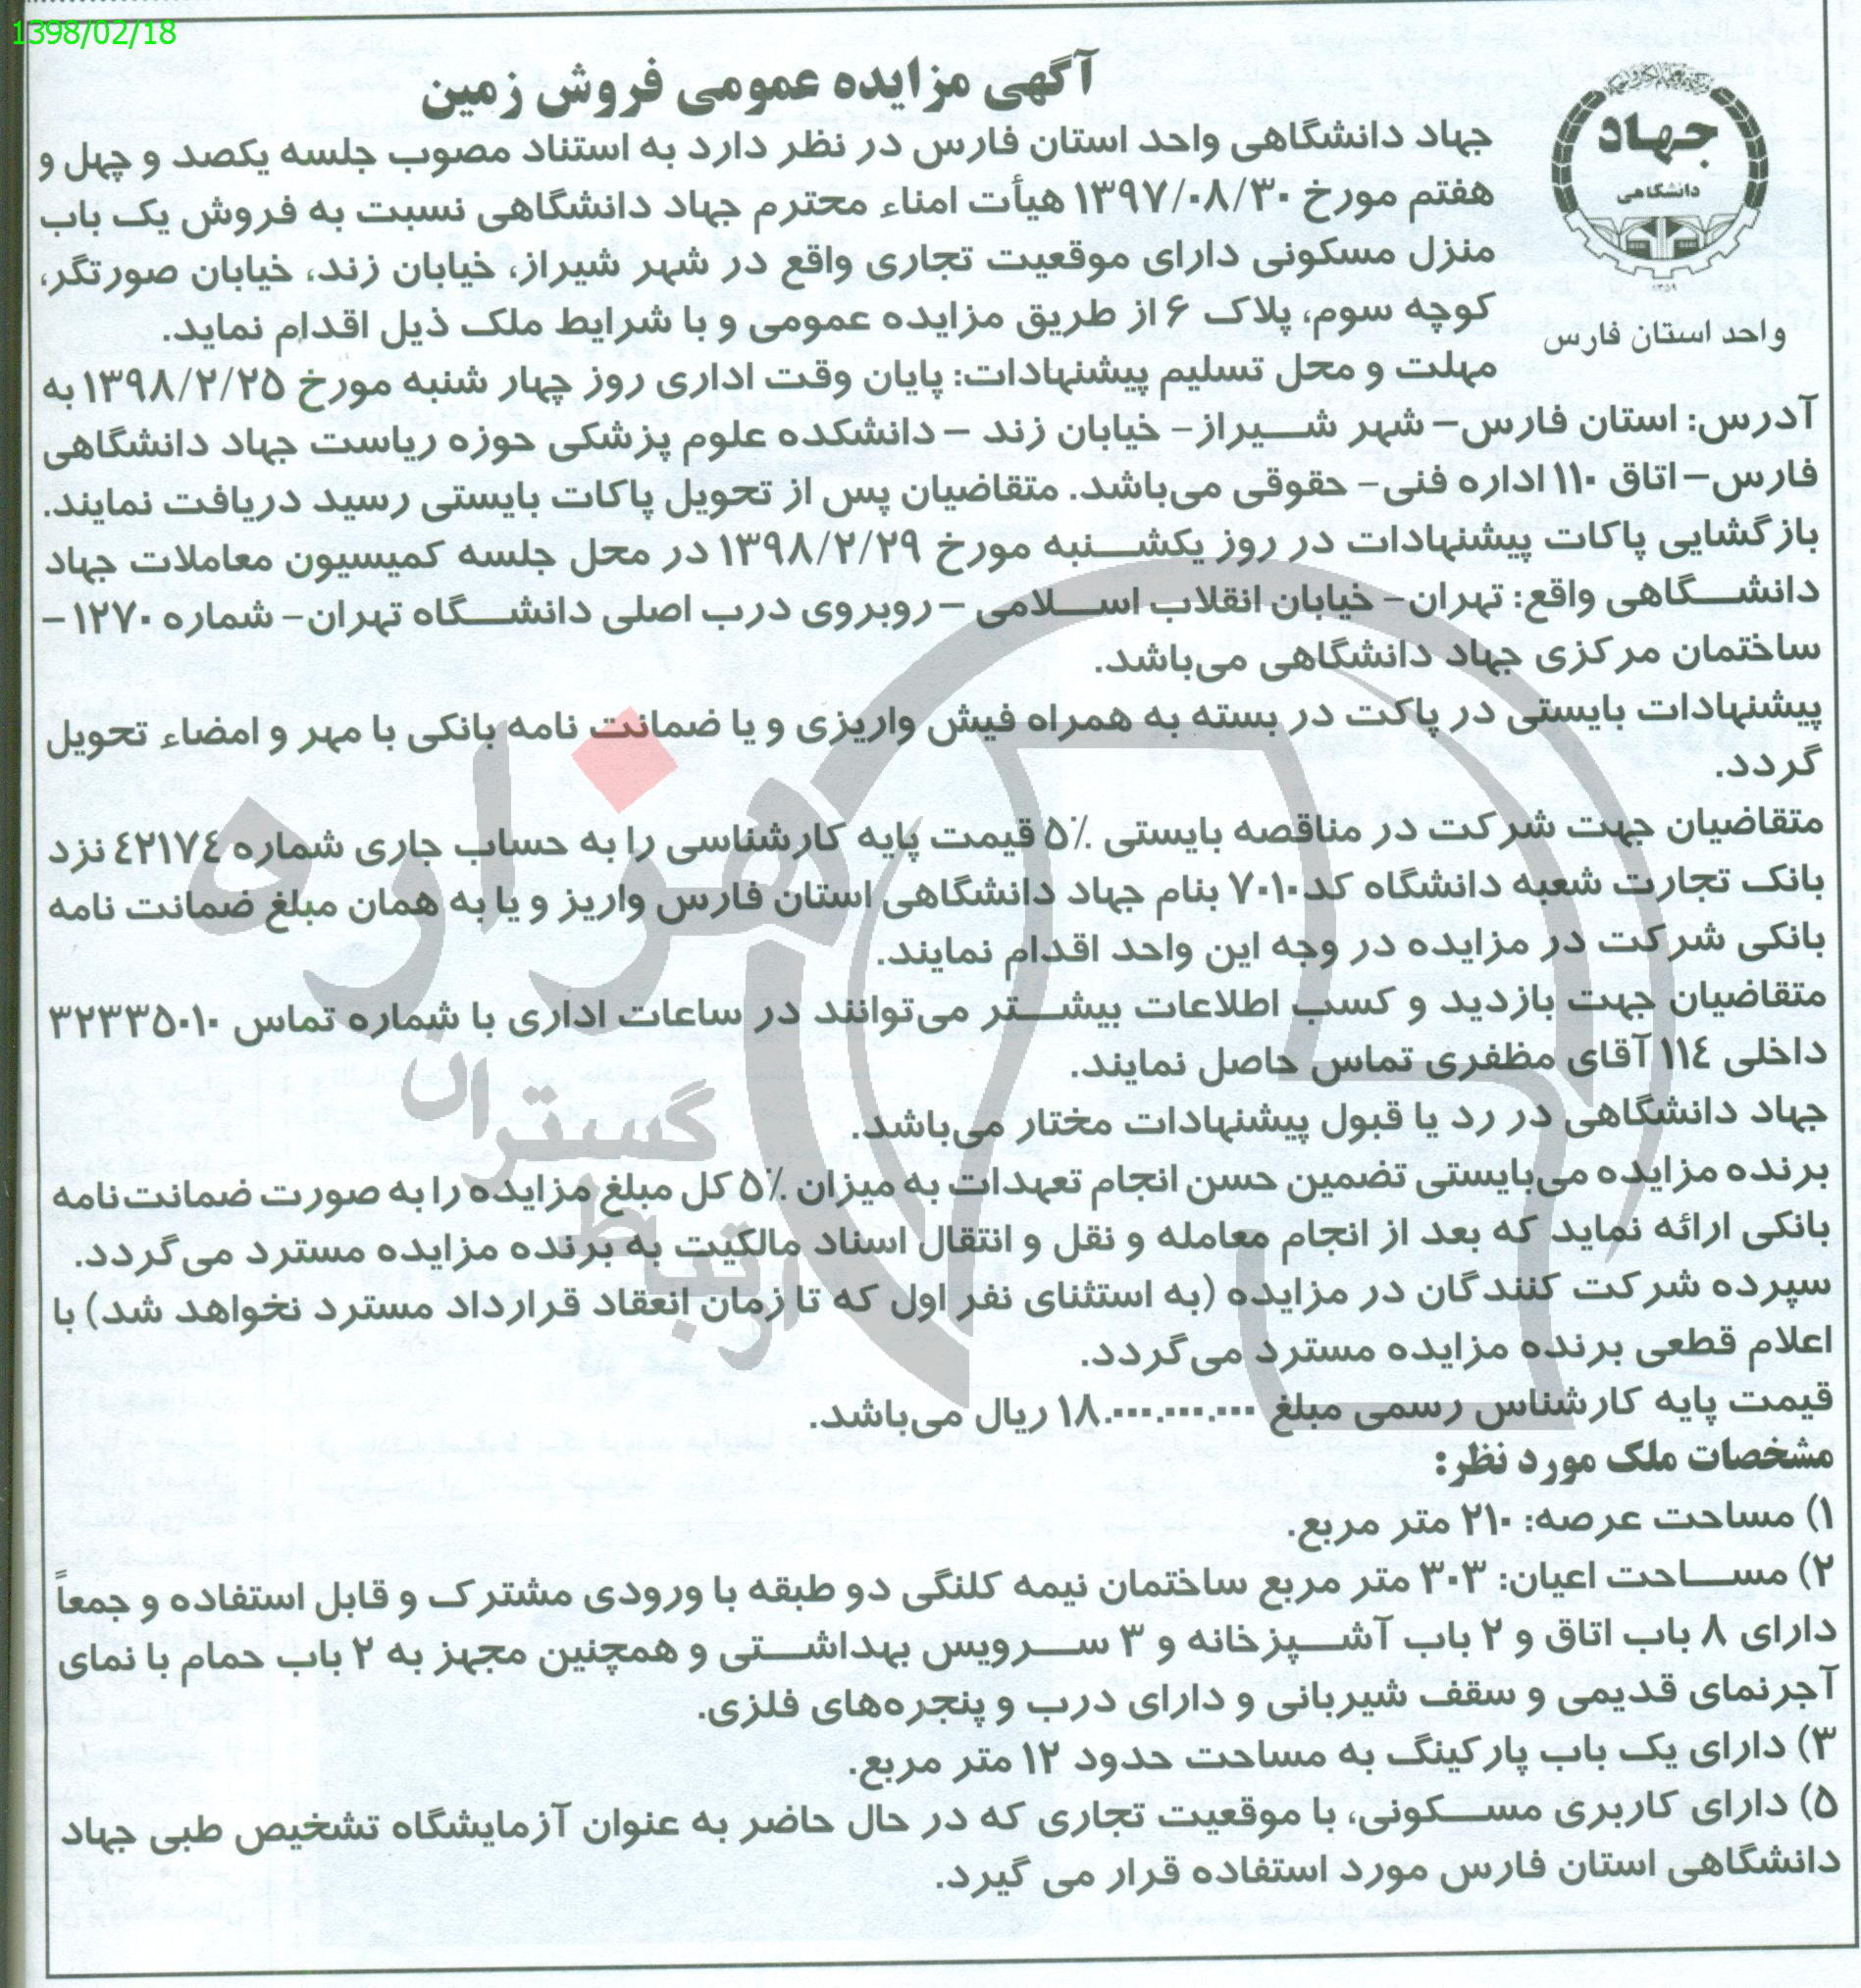 1398/02/18
آگهی مزایده عمومی فروش زمین
جهاد
دانشگاهی
۱۳۵۹
واحد استان فارس
جهاد دانشگاهی واحد استان فارس در نظر دارد به استناد مصوب جلسه یکصد و چهل و
هفتم مورخ ۱۳۹۷/۰۸/۳۰ هیأت امناء محترم جهاد دانشگاهی نسبت به فروش یک باب
منزل مسکونی دارای موقعیت تجاری واقع در شهر شیراز، خیابان زند، خیابان صورتگر،
کوچه سوم، پلاک ۶ از طریق مزایده عمومی و با شرایط ملک ذیل اقدام نماید.
مهلت و محل تسلیم پیشنهادات: پایان وقت اداری روز چهار شنبه مورخ ۱۳۹۸/۲/۲۵ به
آدرس: استان فارس- شهر شیراز- خیابان زند - دانشکده علوم پزشکی حوزه ریاست جهاد دانشگاهی
فارس- اتاق ۱۱۰ اداره فنی- حقوقی می‌باشد. متقاضیان پس از تحویل پاکات بایستی رسید دریافت نمایند.
بازگشایی پاکات پیشنهادات در روز یکشنبه مورخ ۱۳۹۸/۲/۲۹ در محل جلسه کمیسیون معاملات جهاد
دانشگاهی واقع: تهران- خیابان انقلاب اسلامی - روبروی درب اصلی دانشگاه تهران- شماره ۱۲۷۰ -
ساختمان مرکزی جهاد دانشگاهی می‌باشد.
پیشنهادات بایستی در پاکت در بسته به همراه فیش واریزی و یا ضمانت نامه بانکی با مهر و امضاء تحویل
گردد.
متقاضیان جهت شرکت در مناقصه بایستی ۵٪ قیمت پایه کارشناسی را به حساب جاری شماره ۴۲۱۷۴ نزد
بانک تجارت شعبه دانشگاه کد ۷۰۱۰ بنام جهاد دانشگاهی استان فارس واریز و یا به همان مبلغ ضمانت نامه
بانکی شرکت در مزایده در وجه این واحد اقدام نمایند.
متقاضیان جهت بازدید و کسب اطلاعات بیشتر می‌توانند در ساعات اداری با شماره تماس ۳۲۳۳۵۰۱۰
داخلی ۱۱۴ آقای مظفری تماس حاصل نمایند.
جهاد دانشگاهی در رد یا قبول پیشنهادات مختار می‌باشد.
برنده مزایده می‌بایستی تضمین حسن انجام تعهدات به میزان ۵٪ کل مبلغ مزایده را به صورت ضمانت‌نامه
بانکی ارائه نماید که بعد از انجام معامله و نقل و انتقال اسناد مالکیت به برنده مزایده مسترد می‌گردد.
سپرده شرکت کنندگان در مزایده (به استثنای نفر اول که تا زمان انعقاد قرارداد مسترد نخواهد شد) با
اعلام قطعی برنده مزایده مسترد می‌گردد.
قیمت پایه کارشناس رسمی مبلغ ۱۸.۰۰۰.۰۰۰.۰۰۰ ریال می‌باشد.
مشخصات ملک مورد نظر:
۱) مساحت عرصه: ۲۱۰ متر مربع.
۲) مساحت اعیان: ۳۰۳ متر مربع ساختمان نیمه کلنگی دو طبقه با ورودی مشترک و قابل استفاده و جمعاً
دارای ۸ باب اتاق و ۲ باب آشپزخانه و ۳ سرویس بهداشتی و همچنین مجهز به ۲ باب حمام با نمای
آجرنمای قدیمی و سقف شیربانی و دارای درب و پنجره‌های فلزی.
۳) دارای یک باب پارکینگ به مساحت حدود ۱۲ متر مربع.
۵) دارای کاربری مسکونی، با موقعیت تجاری که در حال حاضر به عنوان آزمایشگاه تشخیص طبی جهاد
دانشگاهی استان فارس مورد استفاده قرار می گیرد.
هزاره
گستران
ارتباط